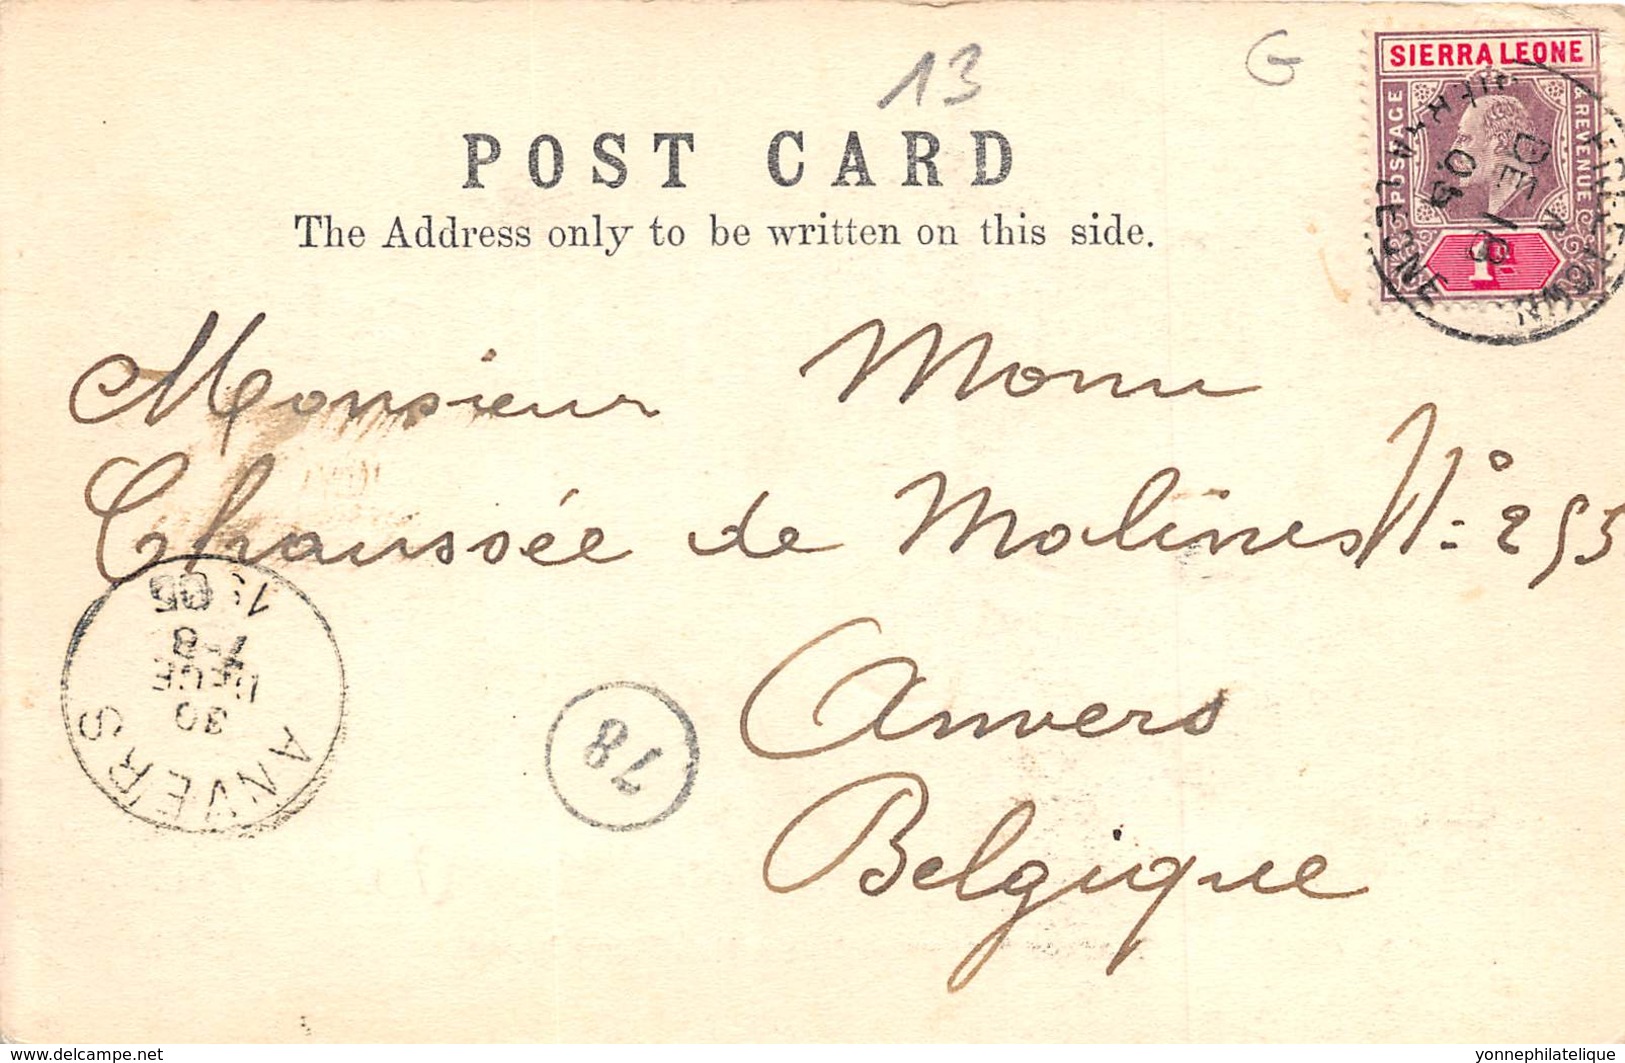 13 G
SIERRA LEONE
POSTAGE & REVENUE
1d
FREETOWN
DE 18
05
SIERRA LEONE
POST CARD
The Address only to be written on this side.
Monsieur
Chaussée de Molines N° 255
Anvers
Belgique
ANVERS
30
DECE
7-8
1905
78
www.delcampe.net
yonnephilatelique